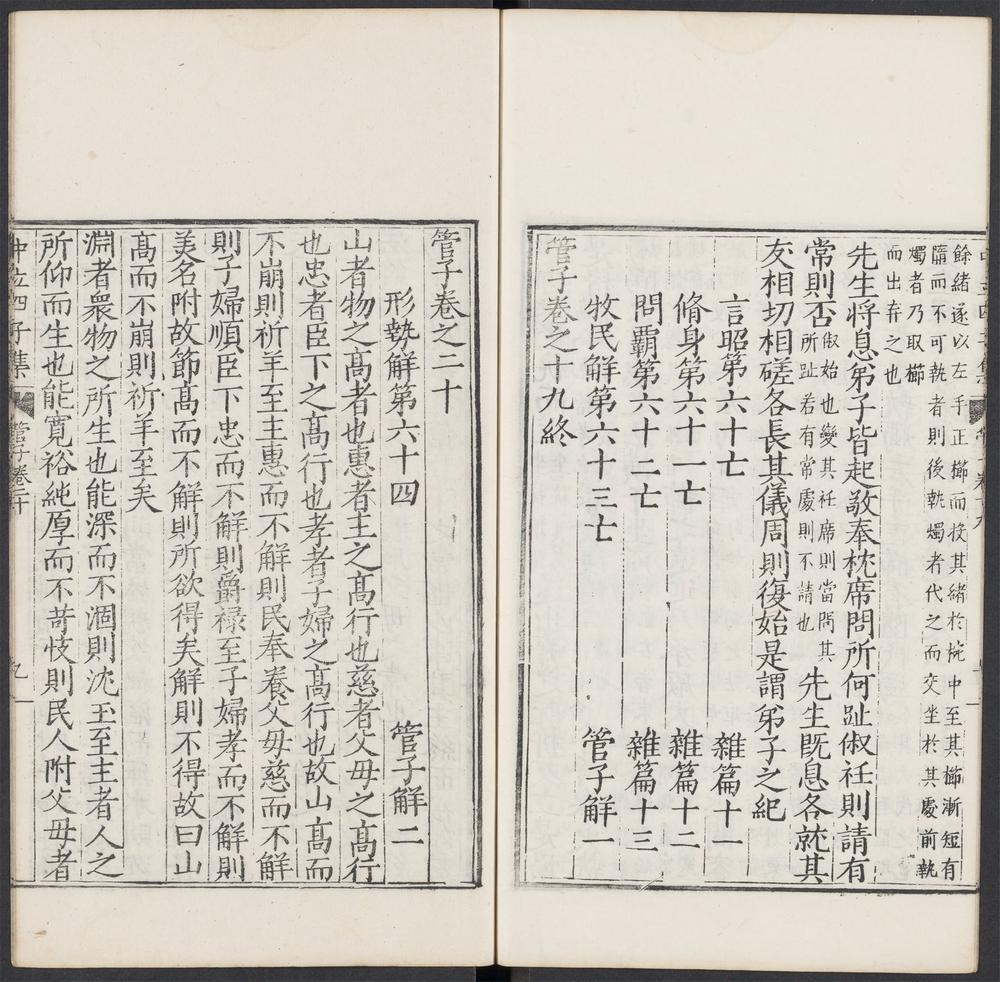 餘緒遂以左手正櫛而投其緒於椀中至其櫛漸短有
隋而不可執者則後執燭者代之而交坐於其處前執
燭者乃取櫛
而出弃之也
先生將息弟子皆起敬奉枕席問所何趾俶衽則請有
常則否俶始也變其衽席則當問其
所趾若有常處則不請也
先生既息各就其
友相切相磋各長其儀周則復始是謂弟子之紀
言昭第六十亡 雜篇十一
脩身第六十一亡 雜篇十二
問霸第六十二亡 雜篇十三
牧民解第六十三亡 管子解一
管子卷之十九終
管子卷之二十
形勢解第六十四 管子解二
山者物之髙者也惠者主之髙行也慈者父母之髙行
也忠者臣下之髙行也孝者子婦之髙行也故山髙而
不崩則祈羊至主惠而不解則民奉養父母慈而不解
則子婦順臣下忠而不解則爵禄至子婦孝而不解則
美名附故節髙而不解則所欲得矣解則不得故曰山
髙而不崩則祈羊至矣
淵者衆物之所生也能深而不涸則沈玉至主者人之
所仰而生也能寛裕純厚而不苛忮則民人附父母者
中立四子集 管子卷二十 九